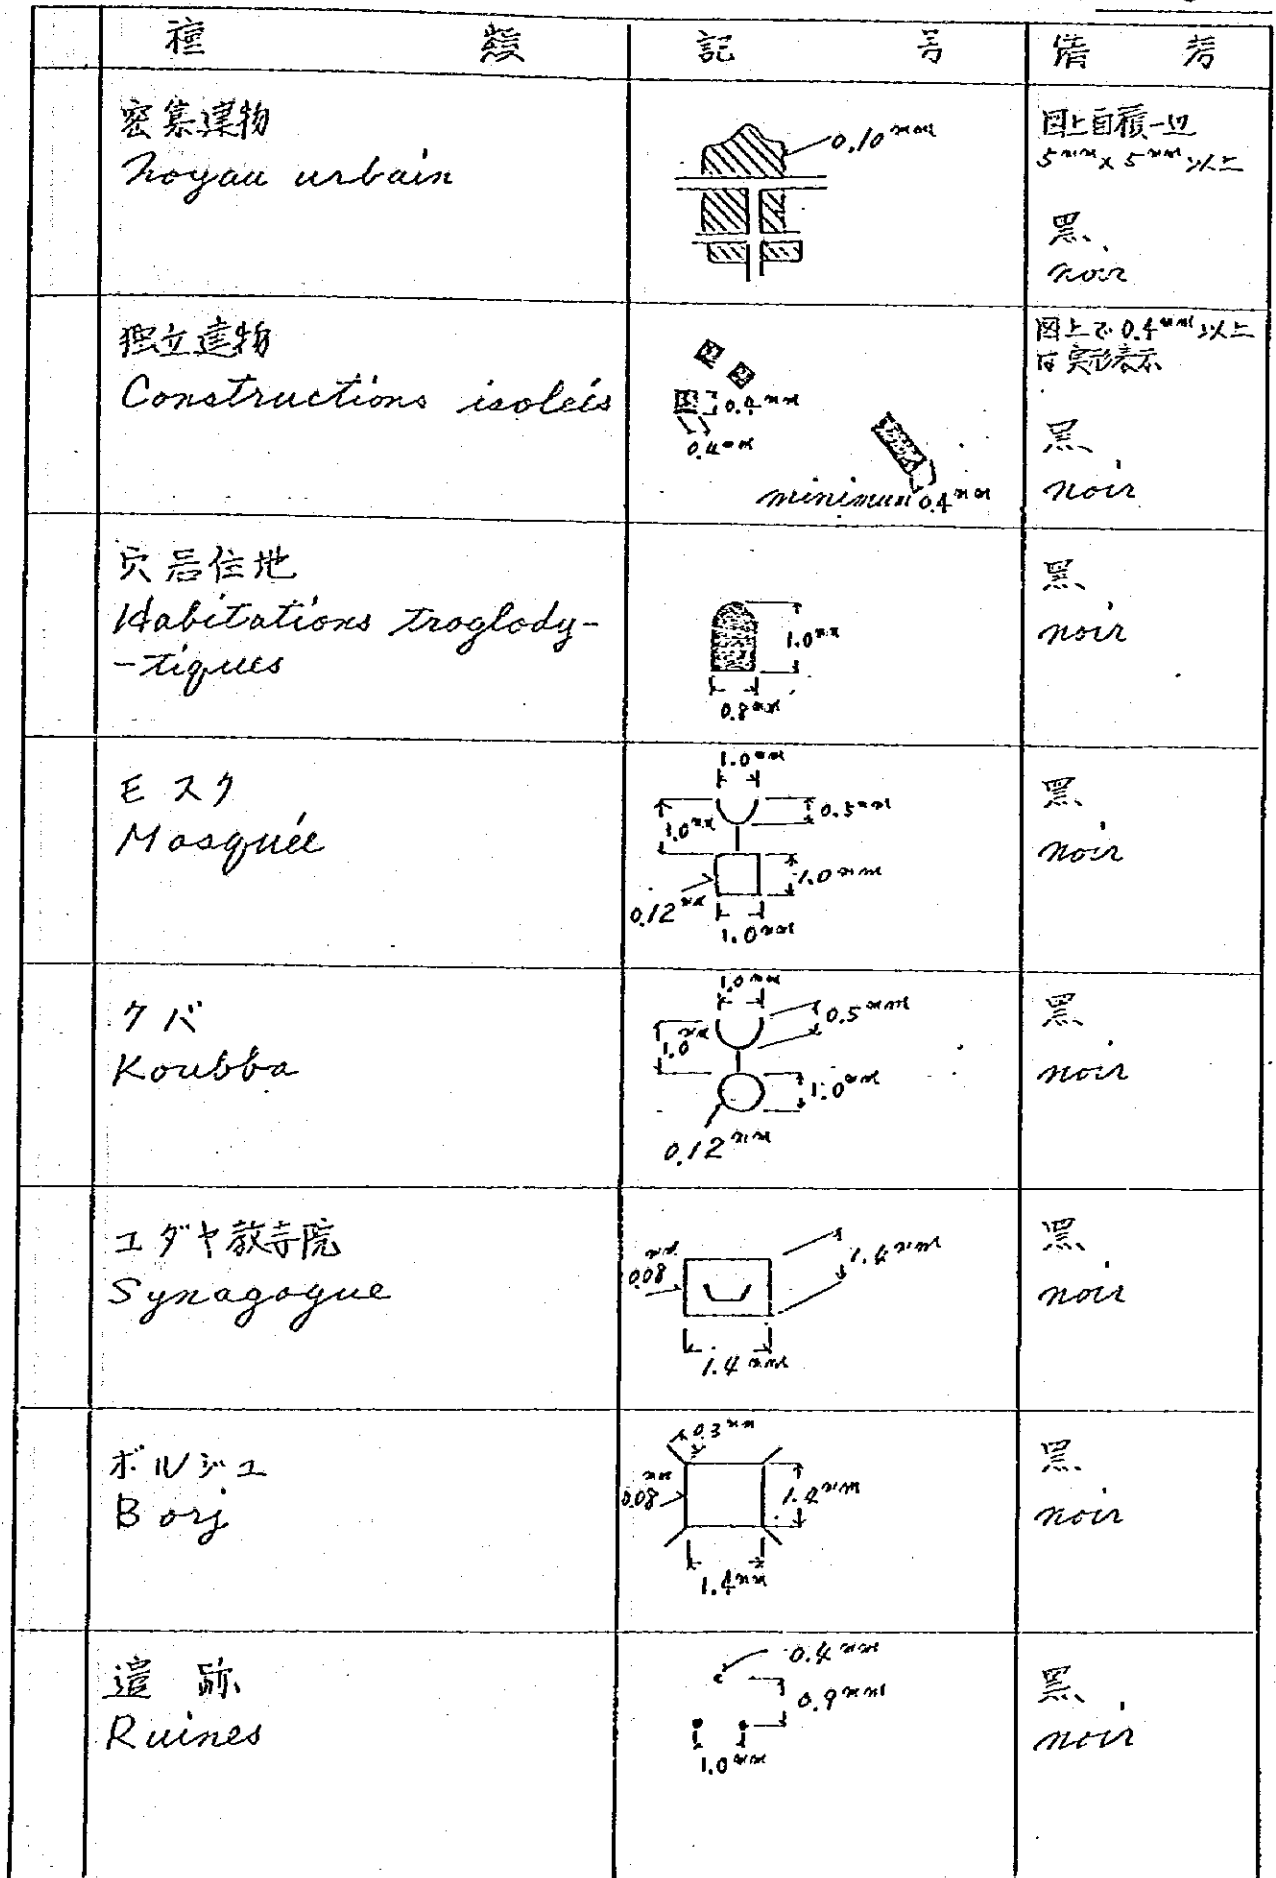 種 類 記 号 備 考
密集建物
Noyau urbain
0.10mm
図上面積一辺
5mm x 5mm 以上
黒
noir
独立建物
Constructions isoleis
0.4mm
0.4mm
minimum 0.4mm
図上で0.4mm以上
は実形表示
黒
noir
穴居住地
Habitations troglody-
-tiques
1.0mm
0.8mm
黒
noir
モスク
Mosquée
1.0mm
1.0mm
0.5mm
1.0mm
0.12mm
1.0mm
黒
noir
クバ
Koubba
1.0mm
1.0mm
0.5mm
1.0mm
0.12mm
黒
noir
ユダヤ教寺院
Synagogue
0.08mm
1.4mm
1.4mm
黒
noir
ボルジュ
Borj
0.3mm
0.08mm
1.4mm
1.4mm
黒
noir
遺跡
Ruines
0.4mm
0.9mm
1.0mm
黒
noir